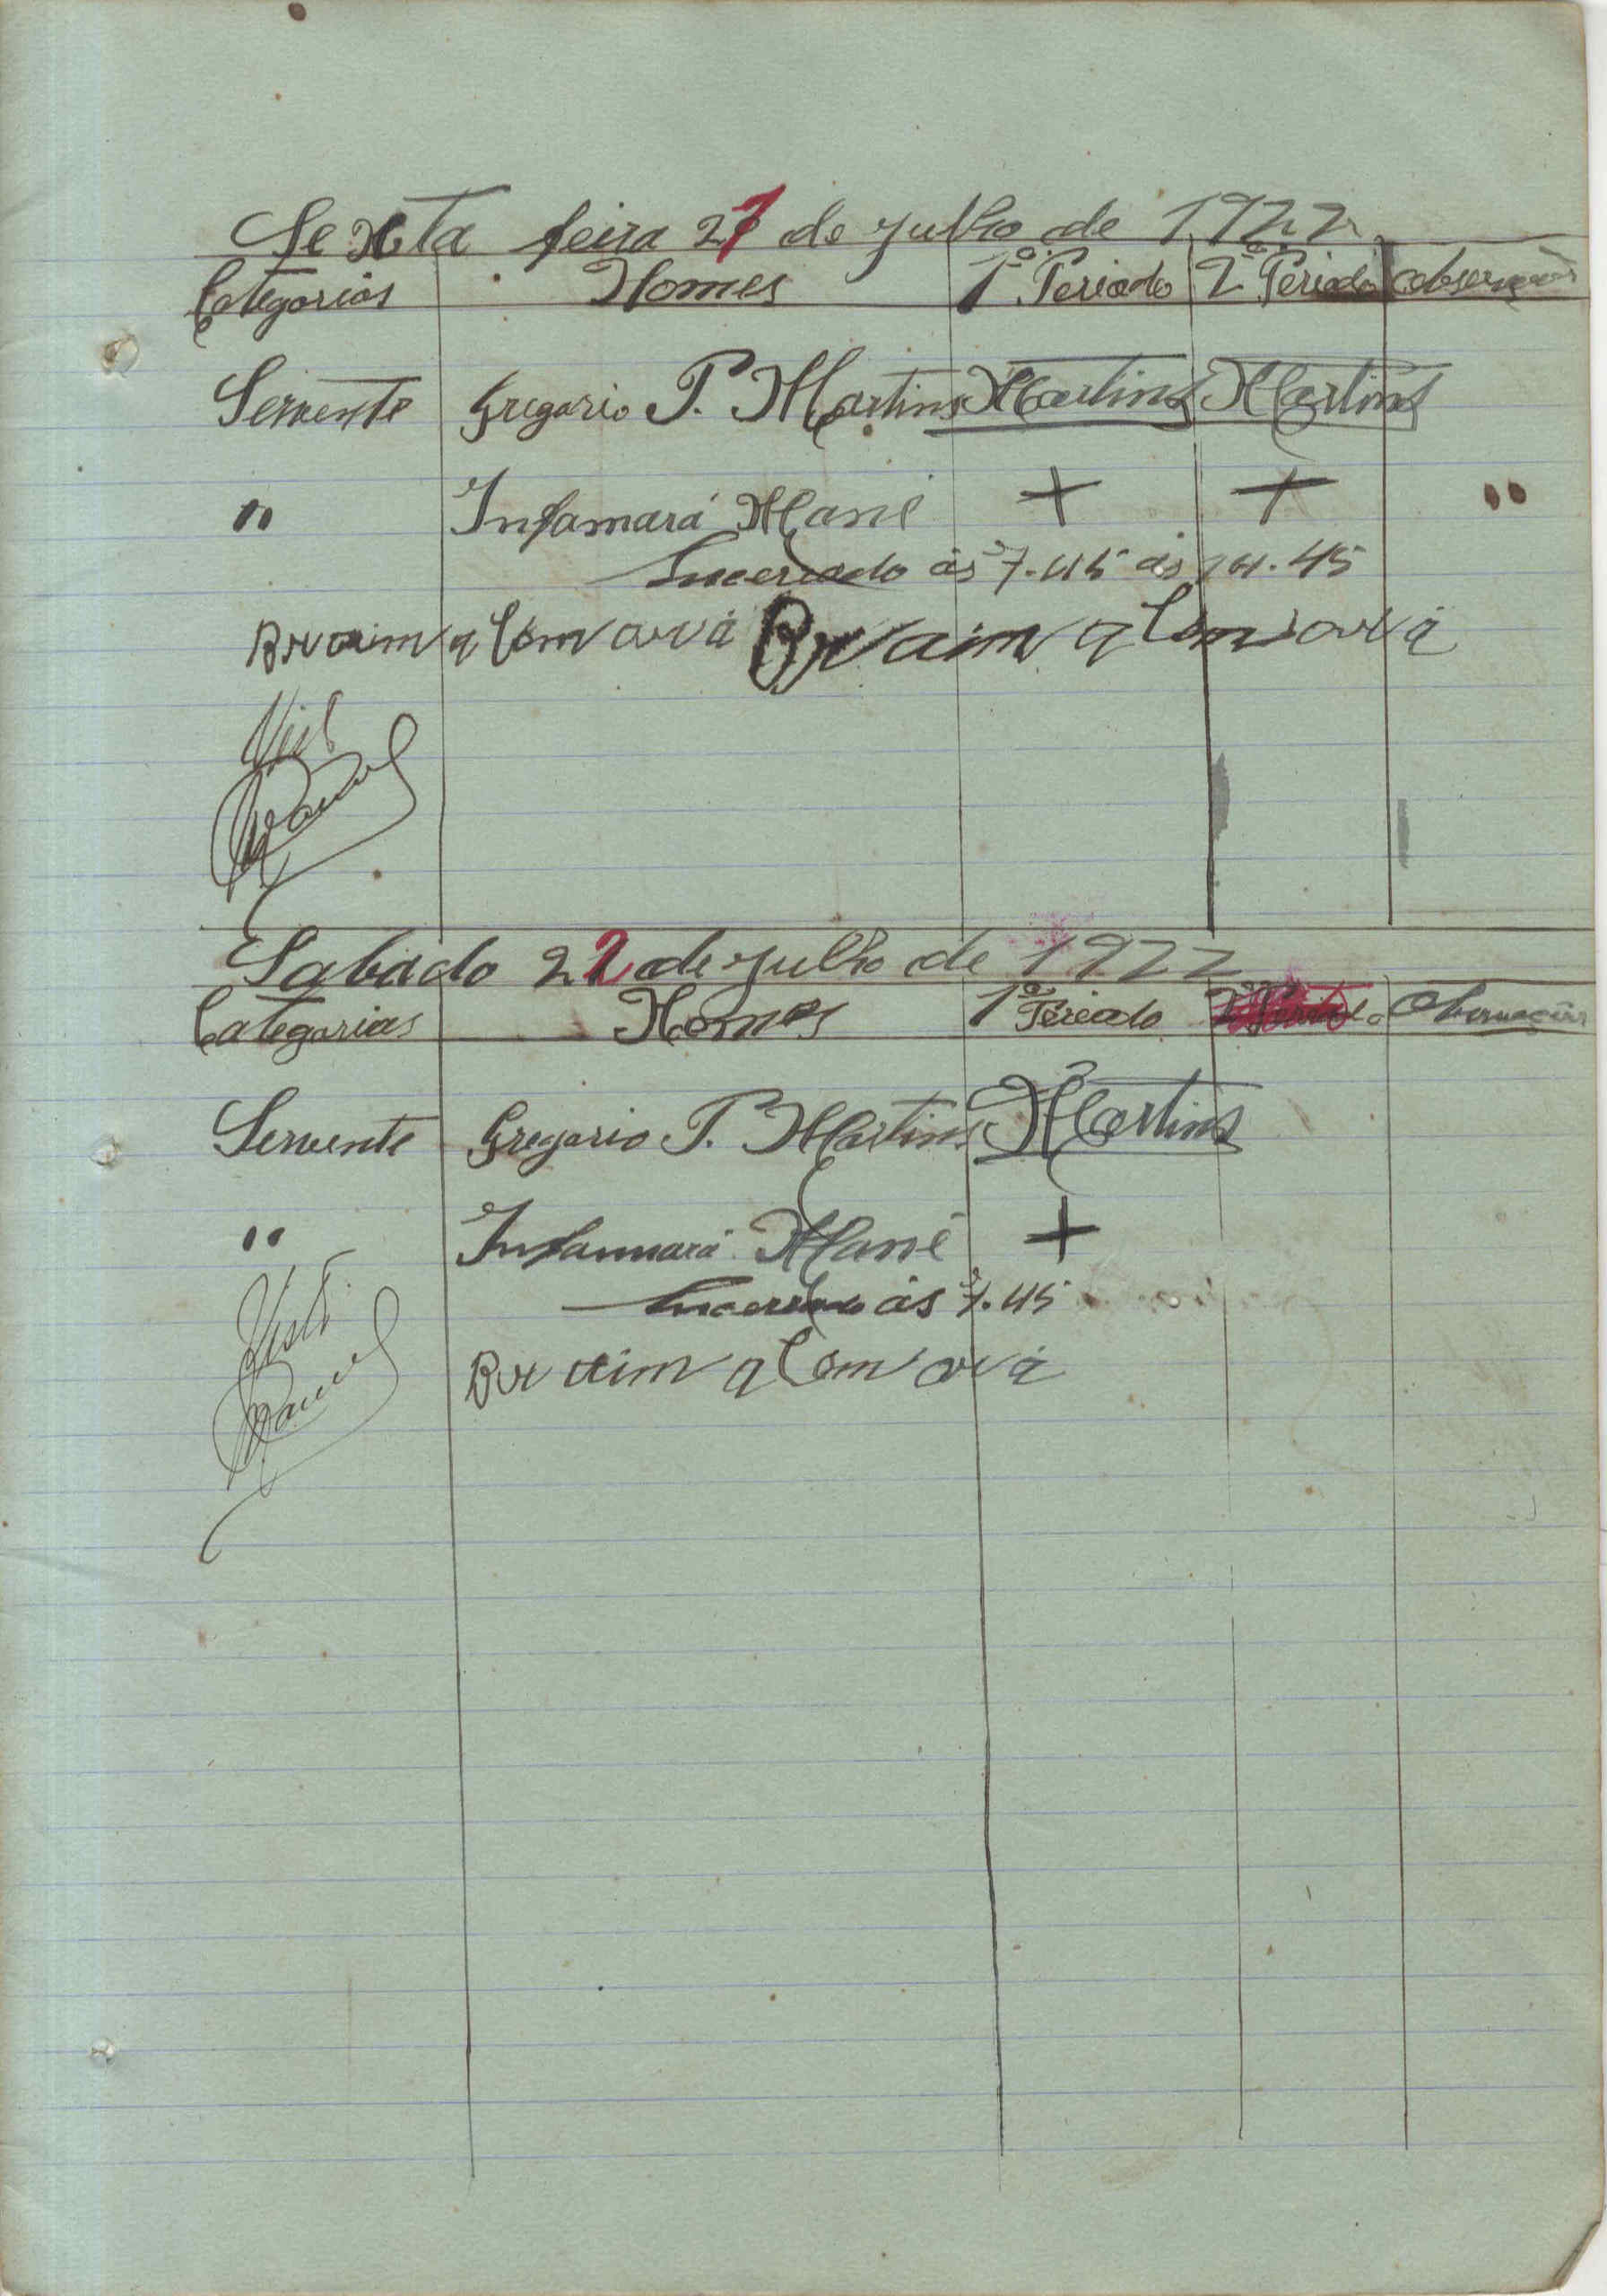 Sexta feira 21 de Julho de 1922
Categorias Nomes 1º Periodo 2º Periodo observações
Servente Gregorio P. Martins Martins Martins
" Infamará Mané + + "
Encerrado ás 7.45 ás 14.45
Visto
Sabado 22 de Julho de 1922
Categorias Nomes 1º Periodo 2º Periodo Observações
Servente Gregorio P. Martins Martins
" Infamará Mané +
Encerrado ás 7.45
Visto